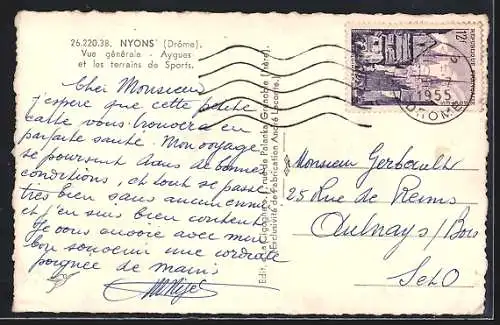 26.220.38. NYONS (Drôme).
Vue générale - Aygues
et les terrains de Sports.
Cher Monsieur
j'espère que cette petite
carte vous trouvera en
parfaite santé. Mon voyage
se poursuit dans de bonnes
conditions, et tout se passe
très bien sans aucun ennui
et j'en suis bien content
Je vous envoie avec mon
bon souvenir une cordiale
poignée de mains
Edit. "La Cigogne", rue de Grenoble (Isère).
Exclusivité de Fabrication André Leconte.
12F
1955
DROME
Monsieur Gerbeault
25 Rue de Reims
Aulnays/Bois
S et O